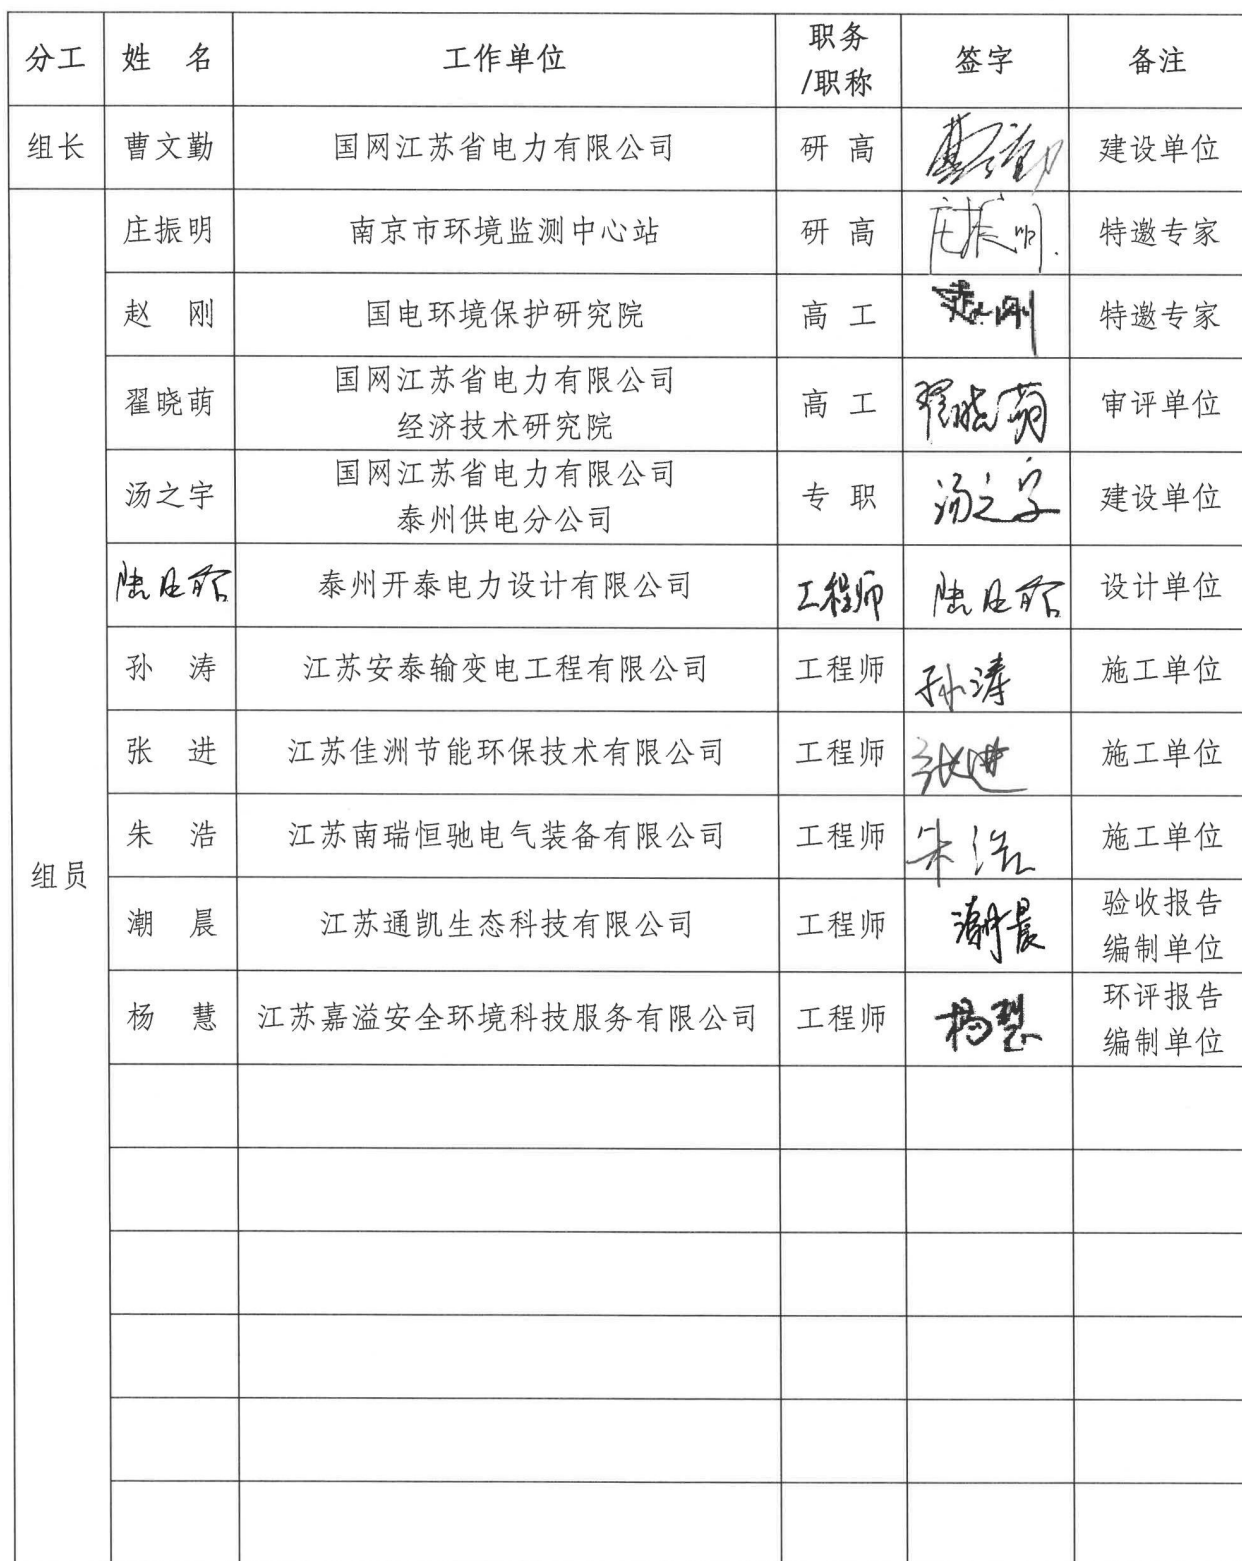 分工 姓 名 工作单位 职务 签字 备注
/职称
组长 曹文勤 国网江苏省电力有限公司 研 高 曹文勤 建设单位
庄振明 南京市环境监测中心站 研 高 庄振明 特邀专家
赵 刚 国电环境保护研究院 高 工 赵刚 特邀专家
翟晓萌 国网江苏省电力有限公司 高 工 翟晓萌 审评单位
经济技术研究院
汤之宇 国网江苏省电力有限公司 专 职 汤之宇 建设单位
泰州供电分公司
泰州开泰电力设计有限公司 工程师 设计单位
孙 涛 江苏安泰输变电工程有限公司 工程师 孙涛 施工单位
张 进 江苏佳洲节能环保技术有限公司 工程师 张进 施工单位
朱 浩 江苏南瑞恒驰电气装备有限公司 工程师 朱浩 施工单位
组员
潮 晨 江苏通凯生态科技有限公司 工程师 潮晨 验收报告
编制单位
杨 慧 江苏嘉溢安全环境科技服务有限公司 工程师 杨慧 环评报告
编制单位